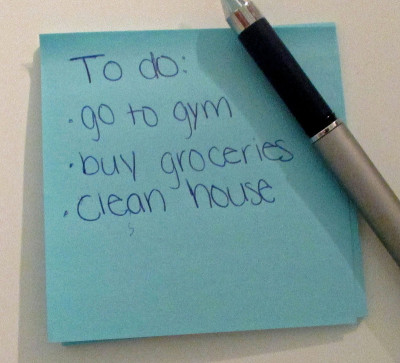 To do:
· go to gym
· buy groceries
· clean house